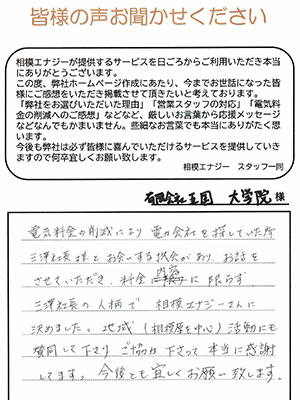 皆様の声お聞かせください
相模エナジーが提供するサービスを日ごろからご利用いただき本当
にありがとうございます。
この度、弊社ホームページ作成にあたり、今までお世話になった皆様
にご感想をいただき掲載させて頂きたいと考えております。
「弊社をお選びいただいた理由」「営業スタッフの対応」「電気料
金の削減へのご感想」などなど、厳しいお言葉から応援メッセージ
などなんでもかまいません。些細なお言葉でも本当にありがたく思
います。
今後も弊社は必ず皆様に喜んでいただけるサービスを提供していき
ますので何卒宜しくお願い致します。
相模エナジー スタッフ一同
有限会社王国 大学院 様
電気料金の削減により 電力会社を探していた所
三澤社長様とお会いする機会があり、お話を
させていただき、料金内容に限らず
三澤社長の人柄で 相模エナジーさんに
決めました。地域(相模原を中心)活動にも
賛同して下さり ご協力下さって 本当に感謝
してます。今後とも宜しくお願い致します。